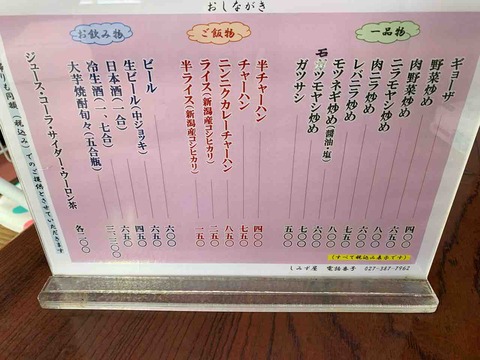 おしながき
一品物
ギョーザ 四〇〇
野菜炒め
肉野菜炒め
ニラモヤシ炒め
肉ニラ炒め
レバニラ炒め
モツネギ炒め(醤油・塩)
ガツモヤシ炒め
ガツサシ 五〇〇
ご飯物
半チャーハン 四〇〇
チャーハン 七五〇
ニンニクカレーチャーハン 八五〇
ライス(新潟産コシヒカリ) 二五〇
半ライス(新潟産コシヒカリ) 一五〇
お飲み物
ビール 六〇〇
生ビール(中ジョッキ) 六五〇
日本酒(一合) 四五〇
冷生酒(一、七合) 六五〇
大芋焼酎旬々(五合瓶) 三、三〇〇
ジュース・コーラ・サイダー・ウーロン茶
りも同額(税込み)でのご提供とさせていただきます
(すべて税込み表示です)
しみず屋 電話番号 027-387-7962